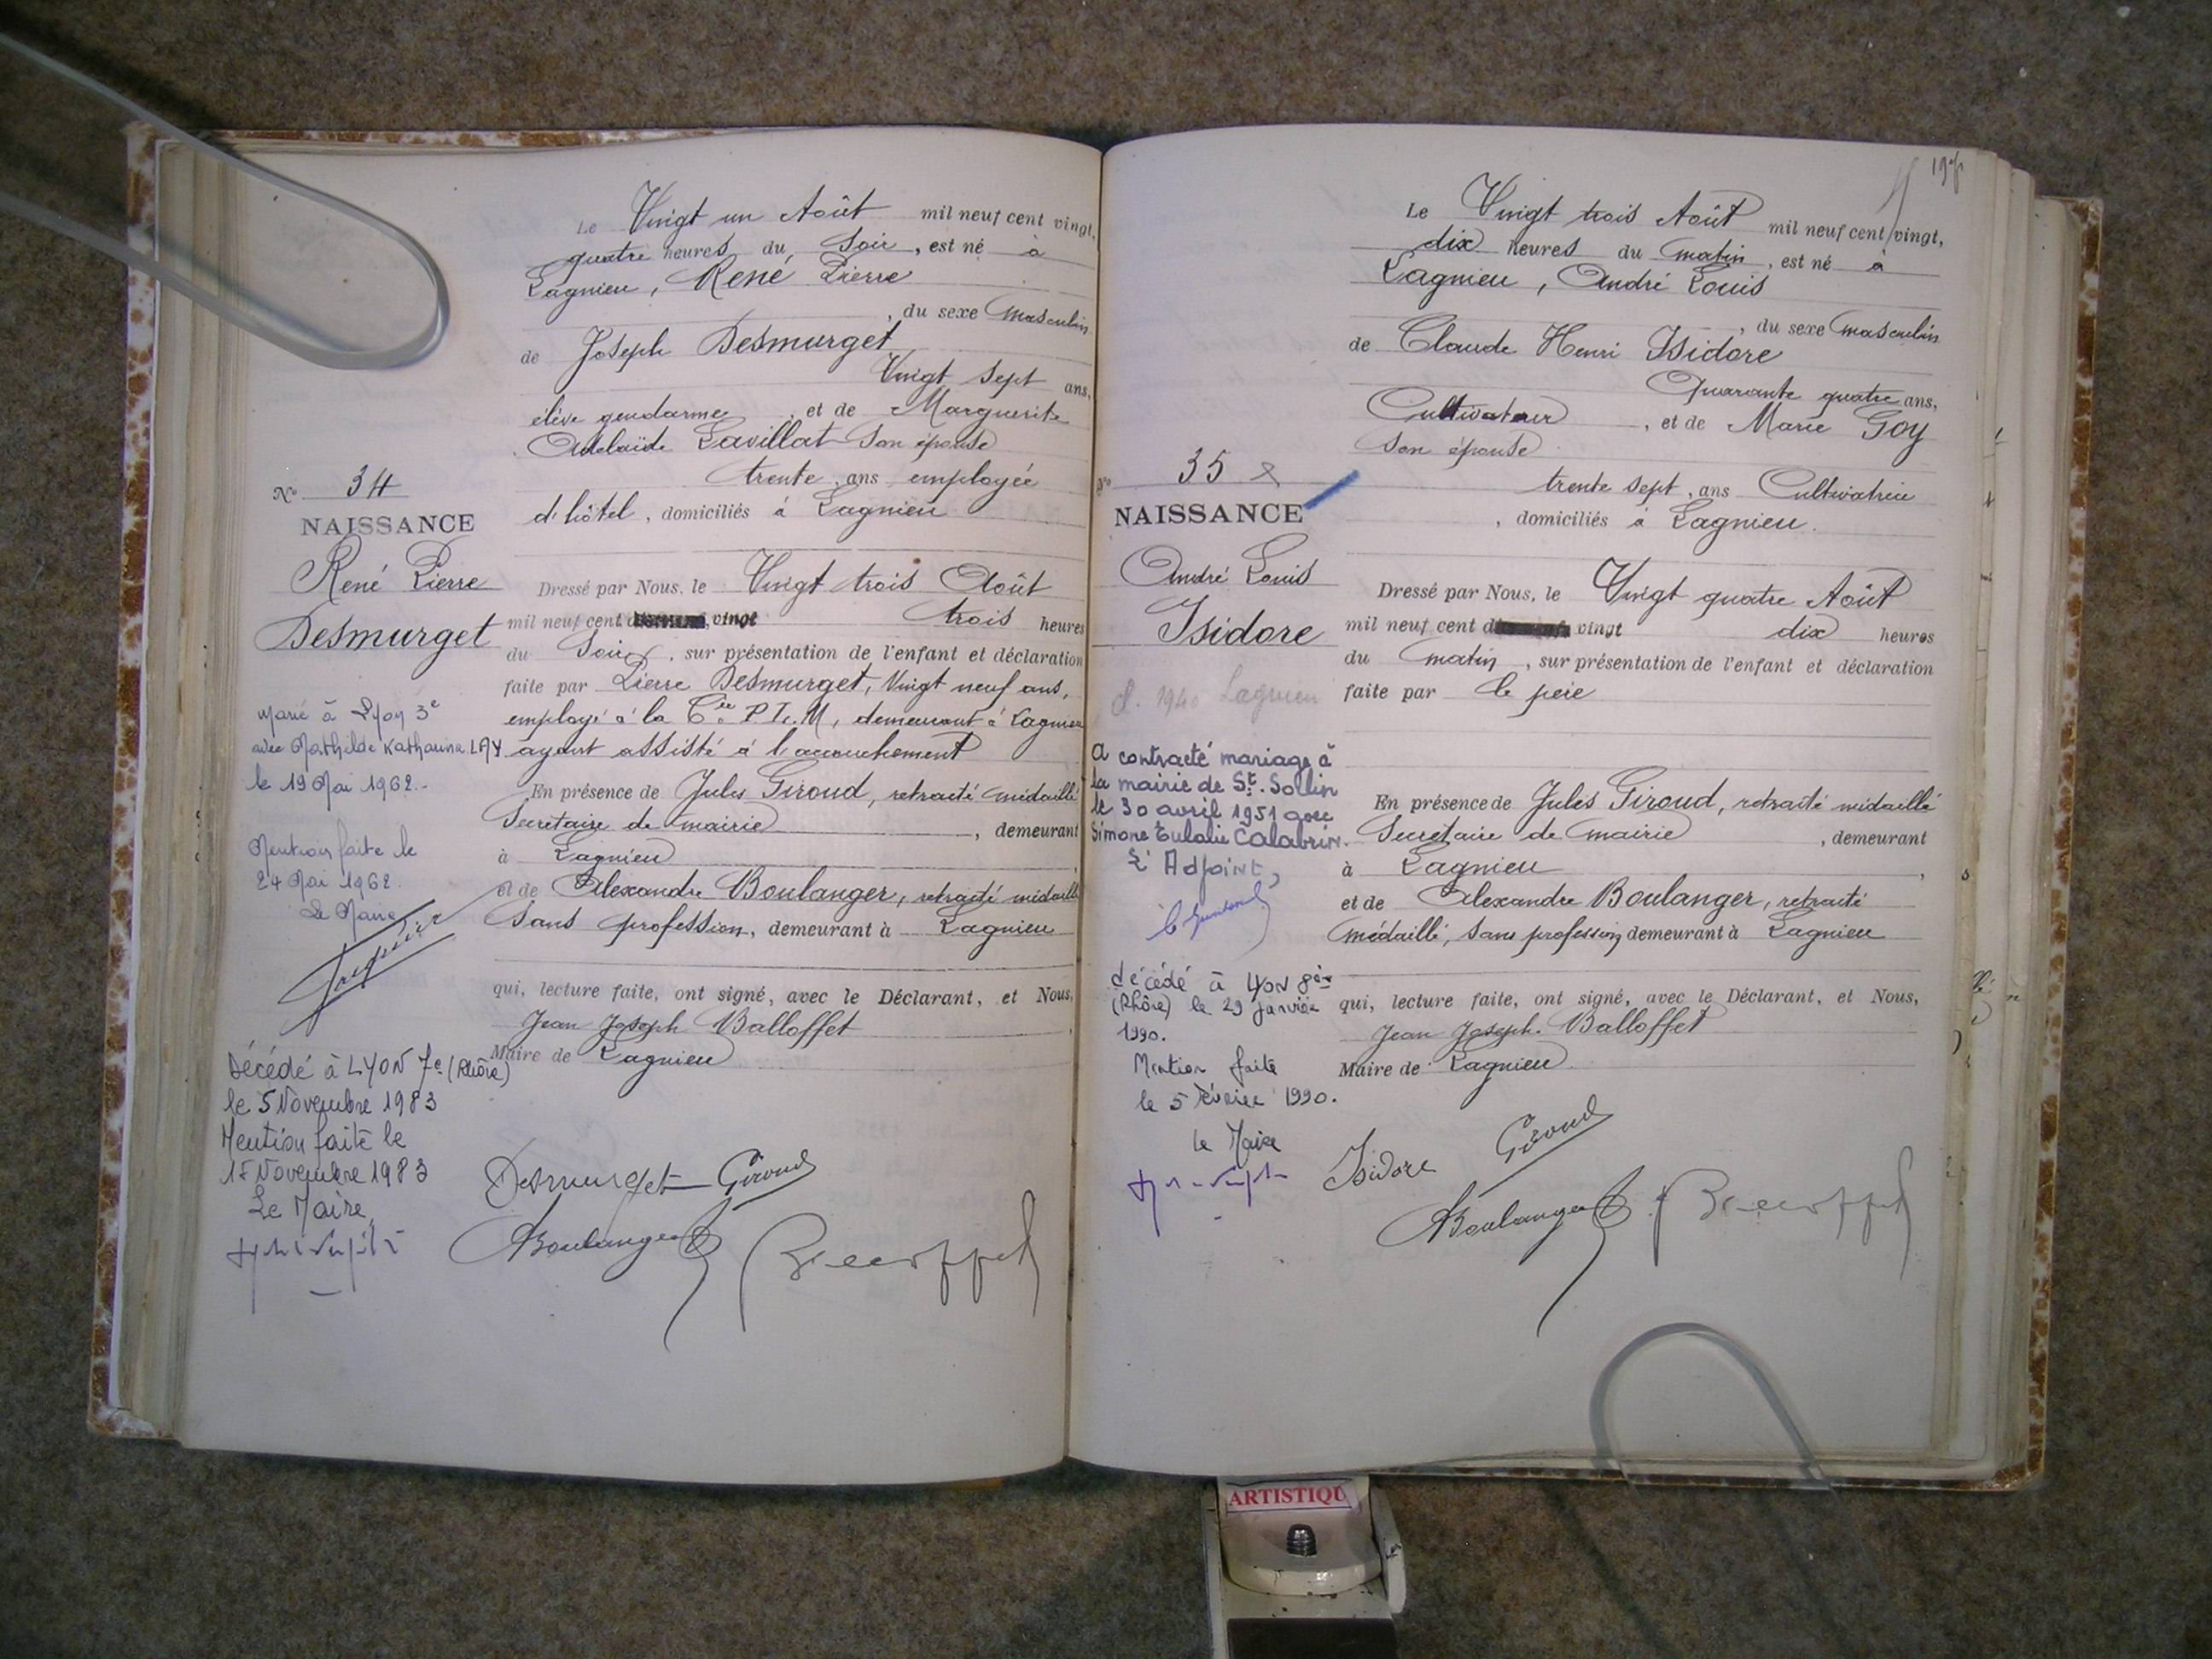 Le Vingt un Août mil neuf cent vingt,
quatre heures du Soir, est né à
Lagnieu, René Pierre
, du sexe Masculin
de Joseph Desmurget
Vingt Sept ans,
élève gendarme, et de Marguerite
Adélaïde Lavillat Son épouse
trente, ans employée
d'hôtel, domiciliés à Lagnieu
Nº 34
NAISSANCE
René Pierre
Desmurget
Dressé par Nous, le Vingt trois Août
mil neuf cent vingt trois heures
du Soir, sur présentation de l'enfant et déclaration
faite par Pierre Desmurget, Vingt neuf ans,
employé à la Cie P.L.M, demeurant à Lagnieu
ayant assisté à l'accouchement
En présence de Jules Giroud, retraité médaillé
Secrétaire de mairie, demeurant
à Lagnieu,
et de Alexandre Boulanger, retraité médaillé
Sans profession, demeurant à Lagnieu
qui, lecture faite, ont signé, avec le Déclarant, et Nous,
Jean Joseph Balloffet,
Maire de Lagnieu
Marié à Lyon 3e
avec Mathilde Katharina LAY
le 19 Mai 1962.-
Mention faite le
24 Mai 1962.
Le Maire
Décédé à LYON 7e (Rhône)
le 5 Novembre 1983
Mention faite le
15 Novembre 1983
Le Maire,
Desmurget Giroud
Boulanger
Balloffet
Le Vingt trois Août mil neuf cent vingt,
dix heures du matin, est né à
Lagnieu, André Louis
, du sexe masculin
de Claude Henri Isidore
Quarante quatre ans,
Cultivateur, et de Marie Goy
Son épouse
trente sept, ans Cultivatrice
, domiciliés à Lagnieu.
Nº 35
NAISSANCE
André Louis
Isidore
Dressé par Nous, le Vingt quatre Août
mil neuf cent vingt dix heures
du matin, sur présentation de l'enfant et déclaration
faite par le père
En présence de Jules Giroud, retraité médaillé
Secrétaire de mairie, demeurant
à Lagnieu,
et de Alexandre Boulanger, retraité
médaillé, Sans profession, demeurant à Lagnieu
qui, lecture faite, ont signé, avec le Déclarant, et Nous,
Jean Joseph Balloffet
Maire de Lagnieu
cl. 1940 Lagnieu
A contracté mariage à
la mairie de St. Sorlin
le 30 avril 1951 avec
Simone Eulalie Calabrin.
L'Adjoint,
décédé à LYON
(Rhône) le 29 Janvier
1990.
Mention faite
le 5 Février 1990.
le Maire
Isidore Giroud
Boulanger Balloffet
ARTISTIQU